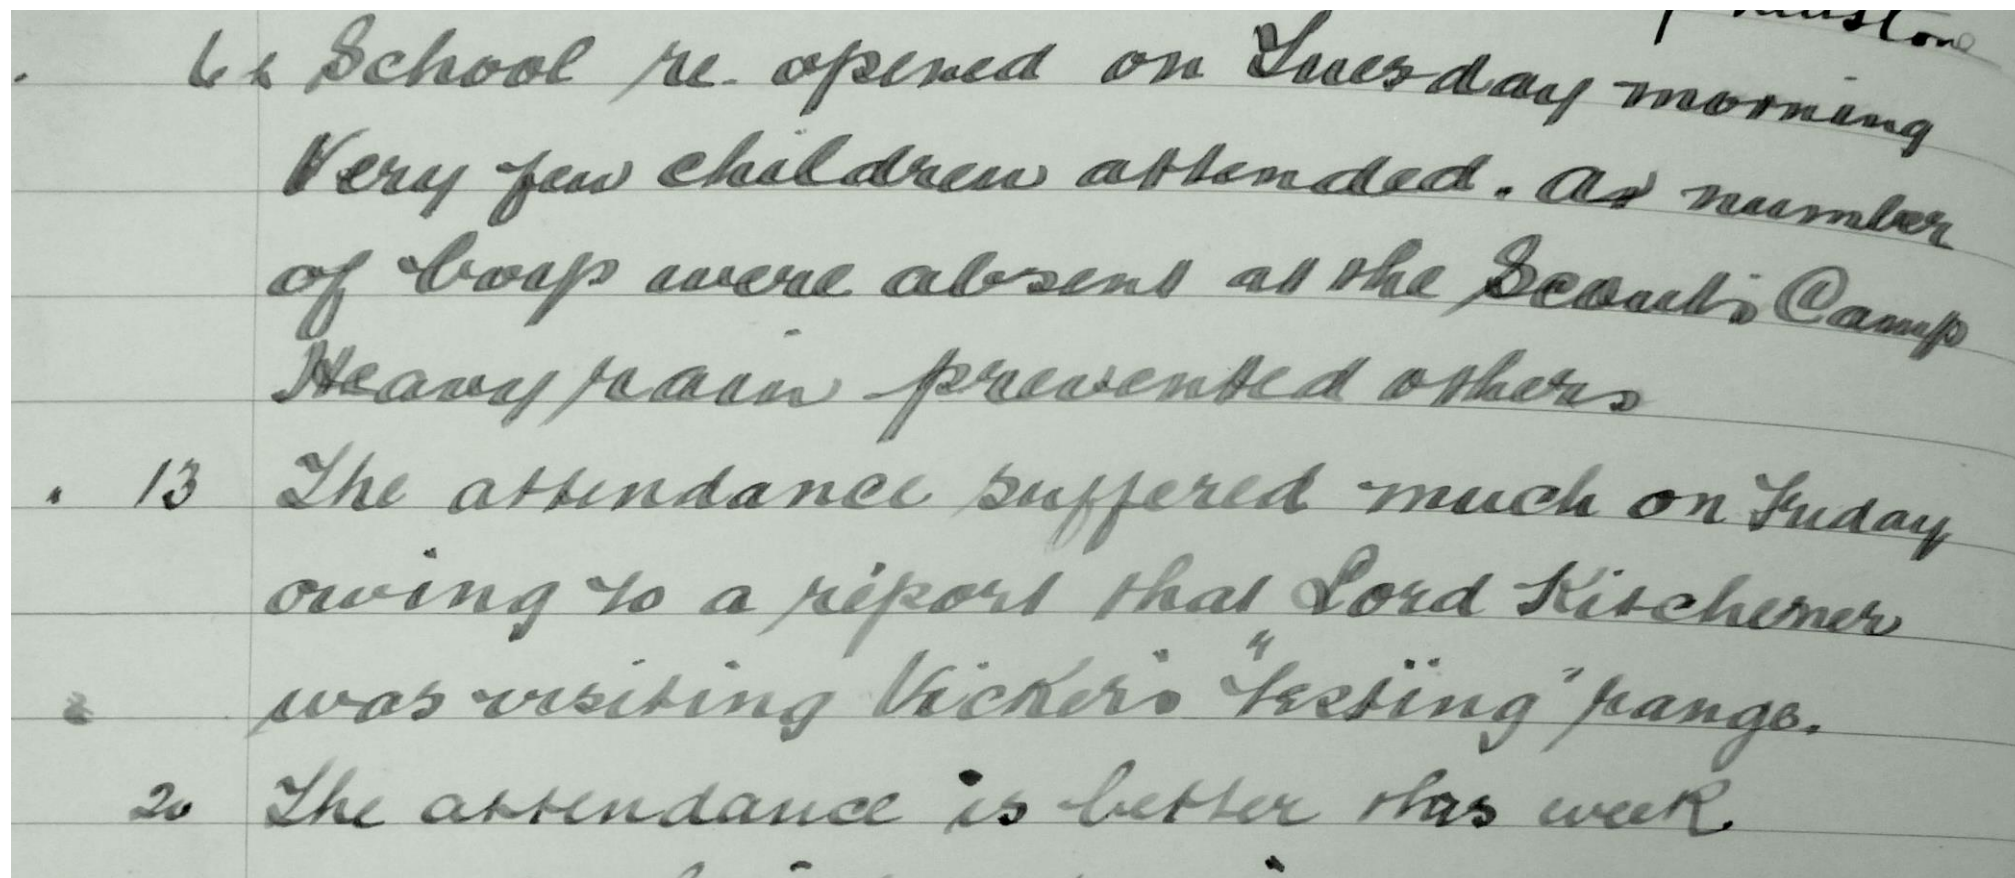 6th School re-opened on Tuesday morning
Very few children attended. As number
of boys were absent at the Scout's Camp
Heavy rain prevented others
" 13 The attendance suffered much on Friday
owing to a report that Lord Kitchener
was visiting Vicker's "testing" range.
20 The attendance is better this week